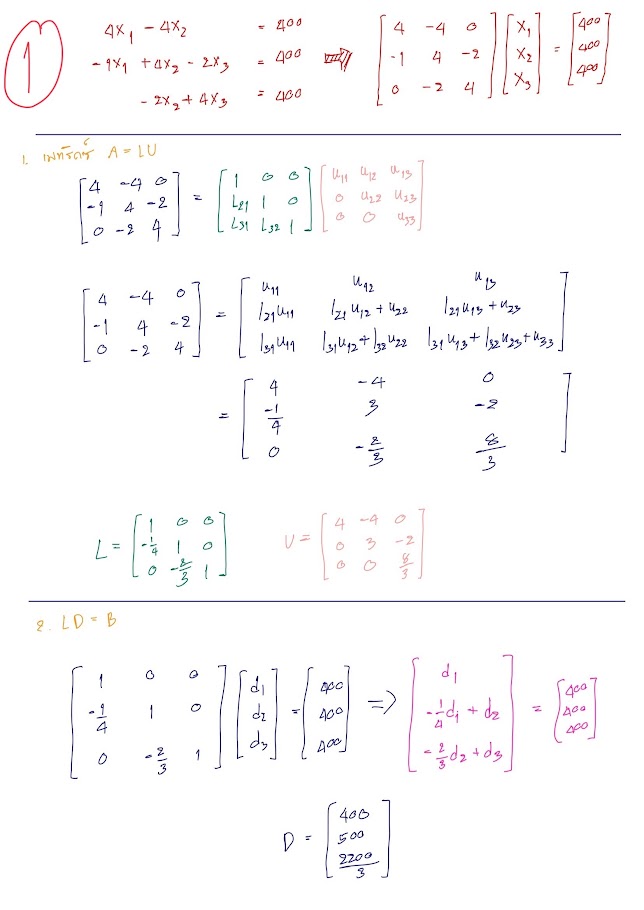 1
4x₁ - 4x₂ = 400
-1x₁ + 4x₂ - 2x₃ = 400
-2x₂ + 4x₃ = 400
⇒
[4 -4 0; -1 4 -2; 0 -2 4] [x₁; x₂; x₃] = [400; 400; 400]
1. เมทริกซ์ A = LU
[4 -4 0; -1 4 -2; 0 -2 4] = [1 0 0; L21 1 0; L31 L32 1] [u11 u12 u13; 0 u22 u23; 0 0 u33]
[4 -4 0; -1 4 -2; 0 -2 4] = [u11 u12 u13; l21u11 l21u12 + u22 l21u13 + u23; l31u11 l31u12 + l32u22 l31u13 + l32u23 + u33]
= [4 -4 0; -1/4 3 -2; 0 -2/3 8/3]
L = [1 0 0; -1/4 1 0; 0 -2/3 1] U = [4 -4 0; 0 3 -2; 0 0 8/3]
2. LD = B
[1 0 0; -1/4 1 0; 0 -2/3 1] [d1; d2; d3] = [400; 400; 400] => [d1; -1/4 d1 + d2; -2/3 d2 + d3] = [400; 400; 400]
D = [400; 500; 2200/3]